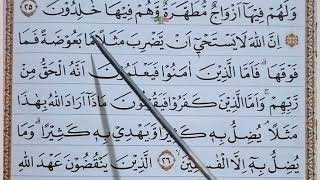 وَلَهُمْ فِيْهَآ اَزْوَاجٌ مُّطَهَّرَةٌ وَّهُمْ فِيْهَا خٰلِدُوْنَ ٢٥
اِنَّ اللّٰهَ لَا يَسْتَحْيٖٓ اَنْ يَّضْرِبَ مَثَلًا مَّا بَعُوْضَةً فَمَا
فَوْقَهَا ۗ فَاَمَّا الَّذِيْنَ اٰمَنُوْا فَيَعْلَمُوْنَ اَنَّهُ الْحَقُّ مِنْ
رَّبِّهِمْ ۚ وَاَمَّا الَّذِيْنَ كَفَرُوْا فَيَقُوْلُوْنَ مَاذَآ اَرَادَ اللّٰهُ بِهٰذَا
مَثَلًا ۘ يُضِلُّ بِهٖ كَثِيْرًا وَّيَهْدِيْ بِهٖ كَثِيْرًا ۗ وَمَا
يُضِلُّ بِهٖٓ اِلَّا الْفٰسِقِيْنَ ۙ ٢٦ الَّذِيْنَ يَنْقُضُوْنَ عَهْدَ اللّٰهِ